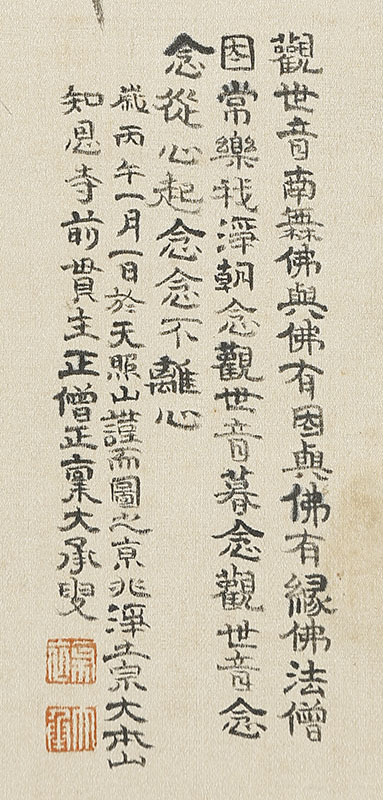 觀世音南無佛與佛有因與佛有縁佛法僧
因常樂我淨朝念觀世音暮念觀世音念
念從心起念念不離心
歲丙午一月一日於天照山謹而圖之京兆淨土宗大本山
知恩寺前貫主正僧正稟大承叟